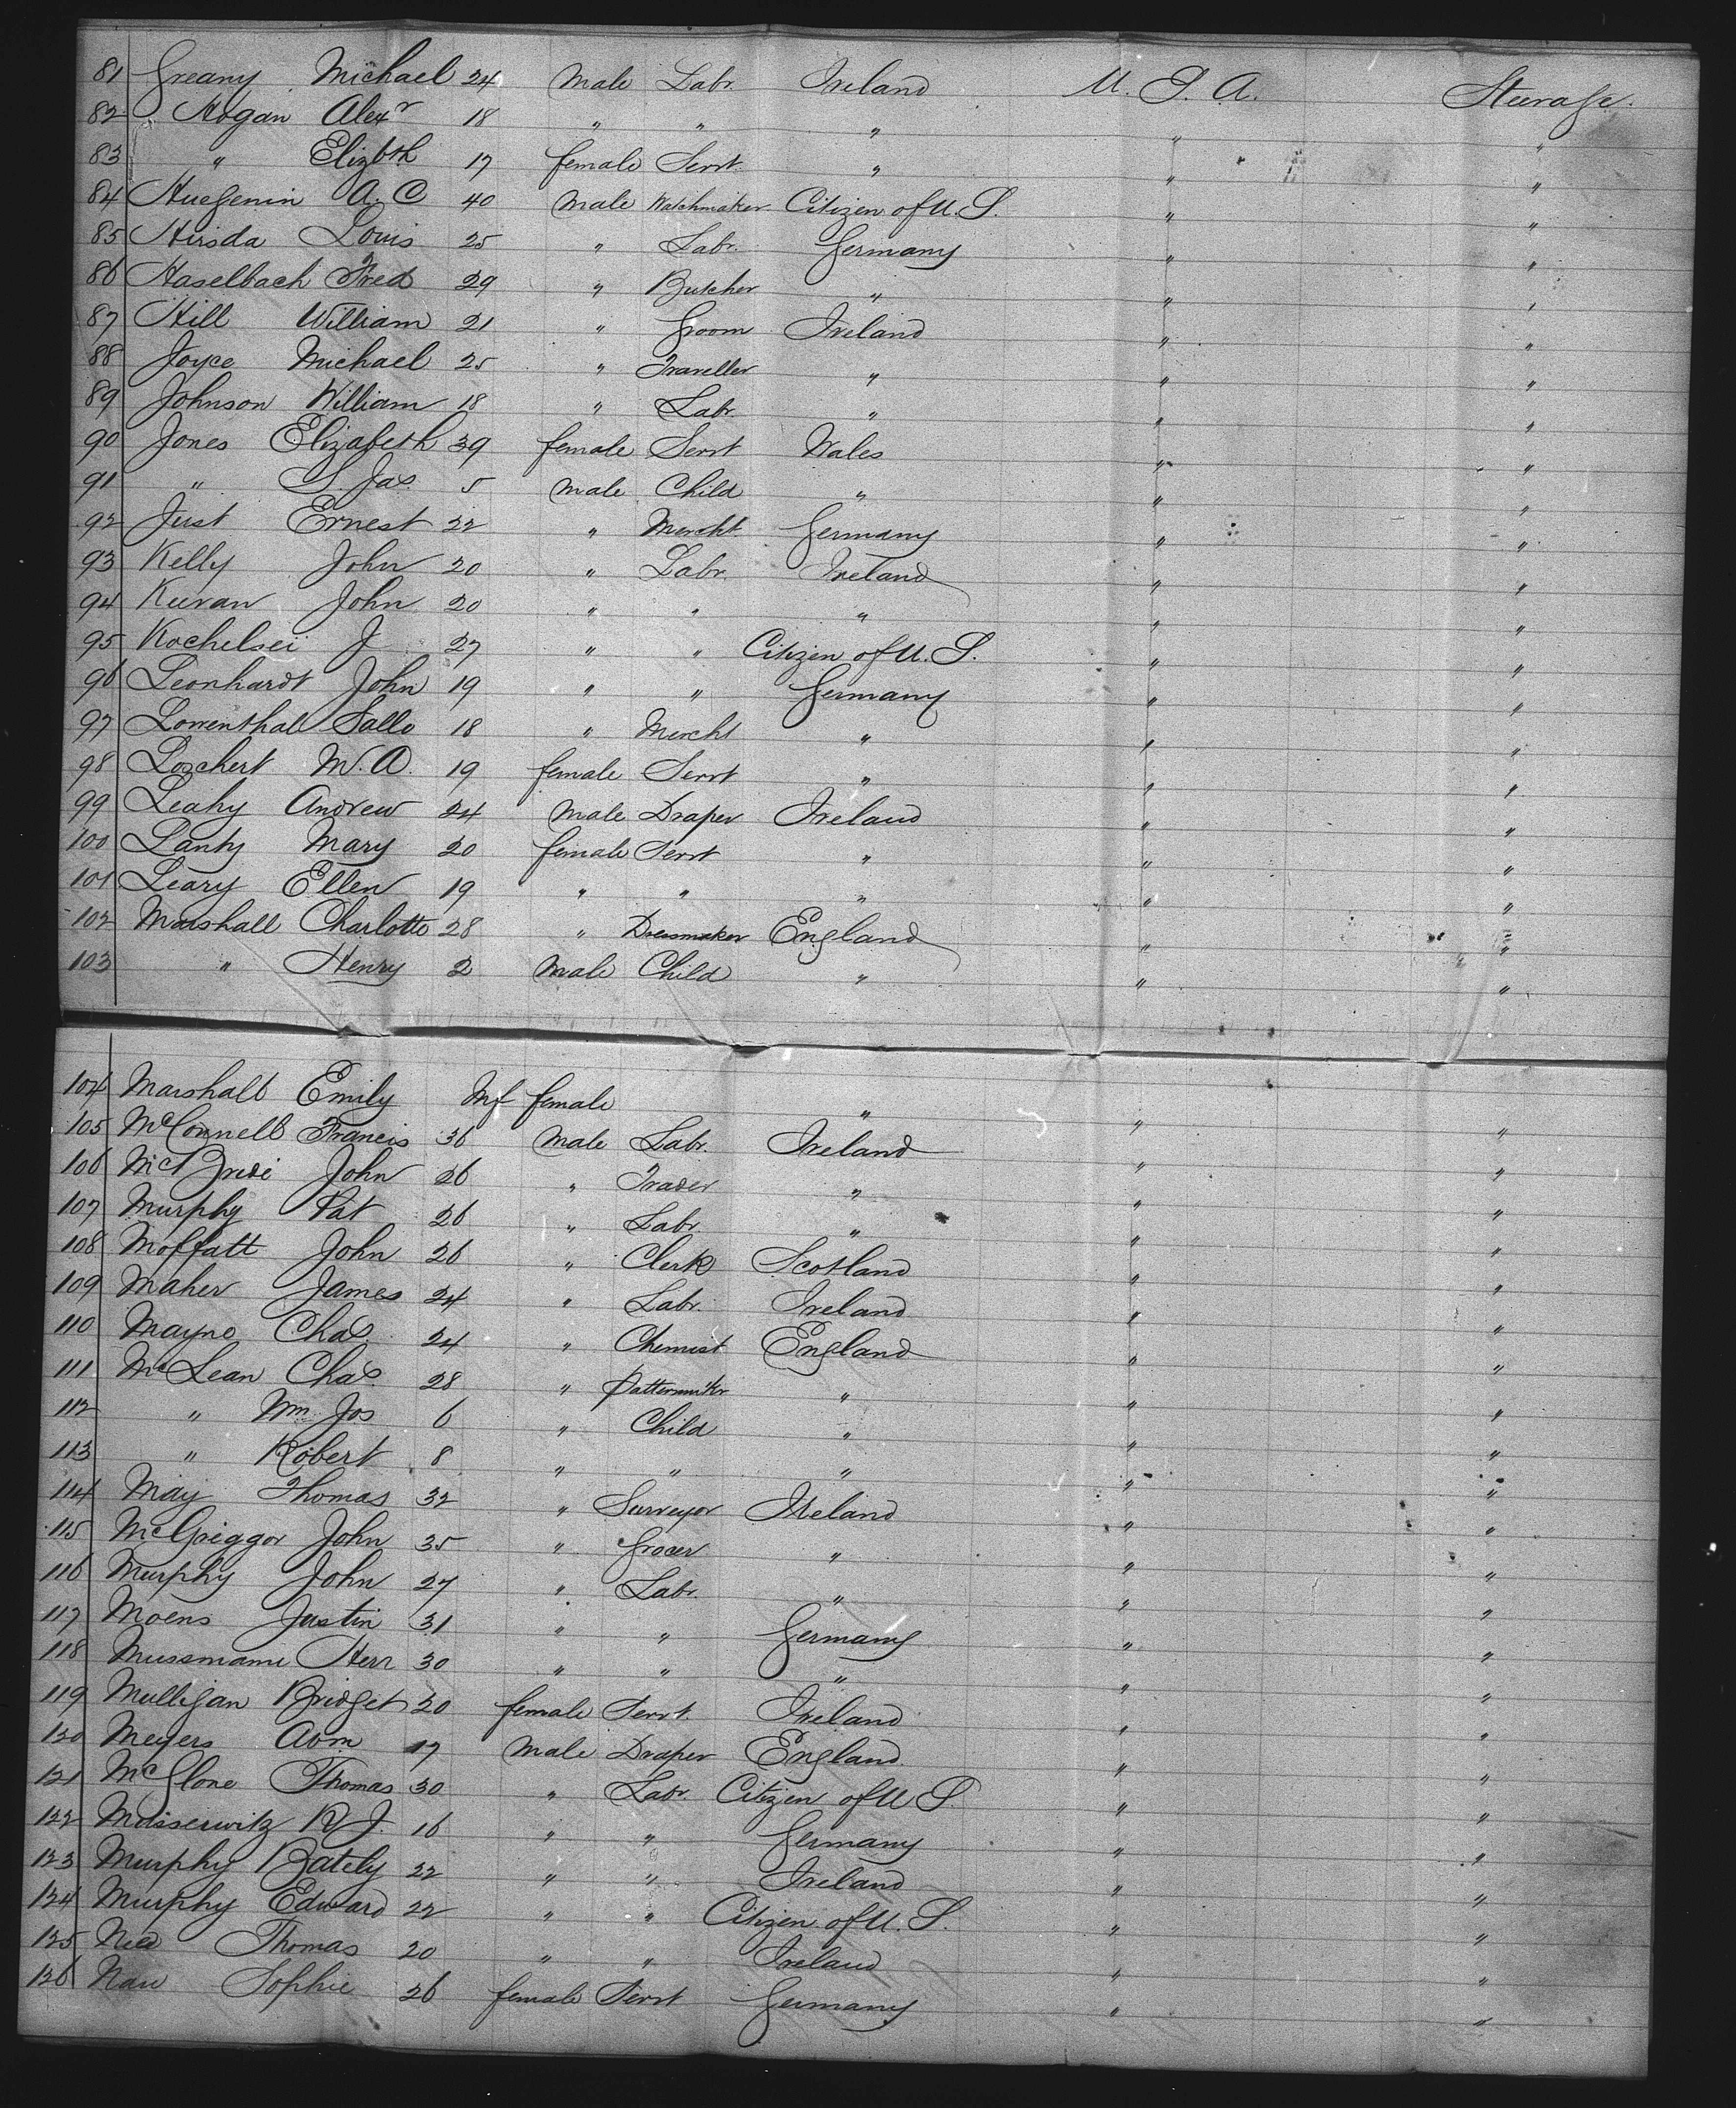 81 Greany Michael 24 Male Labr. Ireland U. S. A. Steerage.
82 Hogan Alexr 18 " " " " "
83 " Elizbth 17 female Servt. " " "
84 Huegenin A. C 40 Male Watchmaker Citizen of U. S. " "
85 Hirsda Louis 25 " Labr. Germany " "
86 Haselbach Fred 29 " Butcher " " "
87 Hill William 21 " Groom Ireland " "
88 Joyce Michael 25 " Traveller " " "
89 Johnson William 18 " Labr. " " "
90 Jones Elizabeth 39 female Servt Wales " "
91 " S. Jas. 5 male Child " " "
92 Just Ernest 22 " Mercht. Germany " "
93 Kelly John 20 " Labr. Ireland " "
94 Kieran John 20 " " " " "
95 Kochelseï J 27 " " Citizen of U. S. " "
96 Leonhardt John 19 " " Germany " "
97 Lowenthal Sallo 18 " Mercht " " "
98 Loschert M. A. 19 female Servt " " "
99 Leahy Andrew 24 Male Draper Ireland " "
100 Lanty Mary 20 female Servt " " "
101 Leary Ellen 19 " " " " "
102 Marshall Charlotte 28 " Dressmaker England " "
103 " Henry 2 Male Child " " "
104 Marshall Emily Inf female " " "
105 McConnell Francis 36 Male Labr. Ireland " "
106 John 26 " Trader " " "
107 Murphy Pat 26 " Labr. " " "
108 Moffatt John 26 " Clerk Scotland " "
109 Maher James 24 " Labr. Ireland " "
110 Mayne Chas. 24 " Chemist England " "
111 McLean Chas. 28 " Patternmkr " " "
112 " Wm Jos 6 " Child " " "
113 " Robert 8 " " " " "
114 May Thomas 32 " Surveyor Ireland " "
115 McGriggor John 35 " Grocer " " "
116 Murphy John 27 " Labr. " " "
117 Moens Justin 31 " " Germany " "
118 Mussmann Herr 30 " " " " "
119 Mulligan Bridget 20 female Servt. Ireland " "
120 Meyers Abm 17 Male Draper England " "
121 McGlone Thomas 30 " Labr. Citizen of U S. " "
122 Maisserwitz R J. 16 " " Germany " "
123 Murphy Bately 22 " " Ireland " "
124 Murphy Edward 22 " " Citizen of U. S. " "
125 Thomas 20 " " Ireland " "
126 Nau Sophie 26 female Servt Germany " "